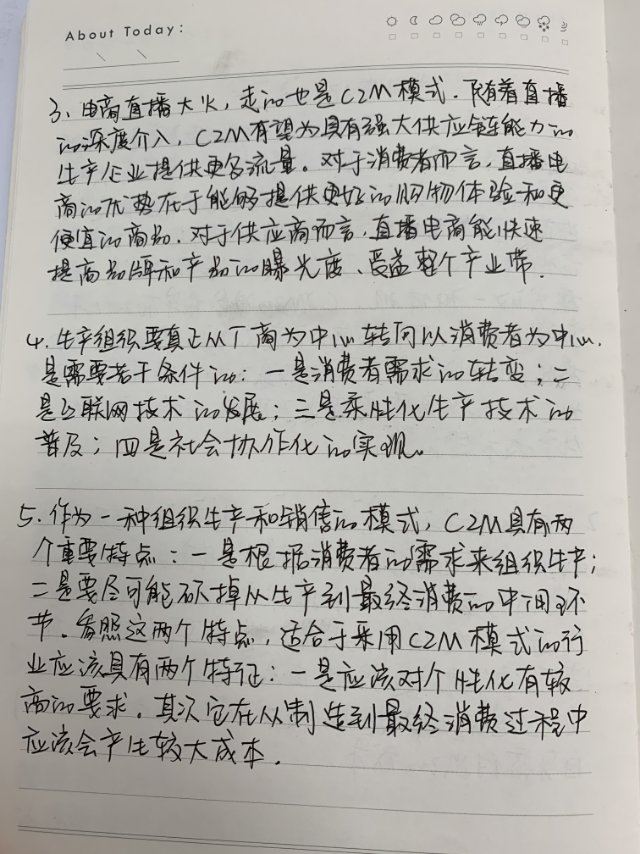 About Today:
3、电商直播大火，走的也是C2M模式．随着直播
的深度介入，C2M有望为具有强大供应链能力的
生产企业提供更多流量。对于消费者而言，直播电
商的优势在于能够提供更好的购物体验和更
便宜的商品．对于供应商而言，直播电商能快速
提高品牌和产品的曝光度、受益整个产业带．
4．生产组织要真正从厂商为中心转向以消费者为中心．
是需要若干条件的：一是消费者需求的转变；二
是互联网技术的发展；三是柔性化生产技术的
普及；四是社会协作化的实现。
5．作为一种组织生产和销售的模式，C2M具有两
个重要特点：一是根据消费者的需求来组织生产；
二是要尽可能砍掉从生产到最终消费的中间环
节．参照这两个特点，适合于采用C2M模式的行
业应该具有两个特征：一是应该对个性化有较
高的要求．其次它在从制造到最终消费过程中
应该会产生较大成本．